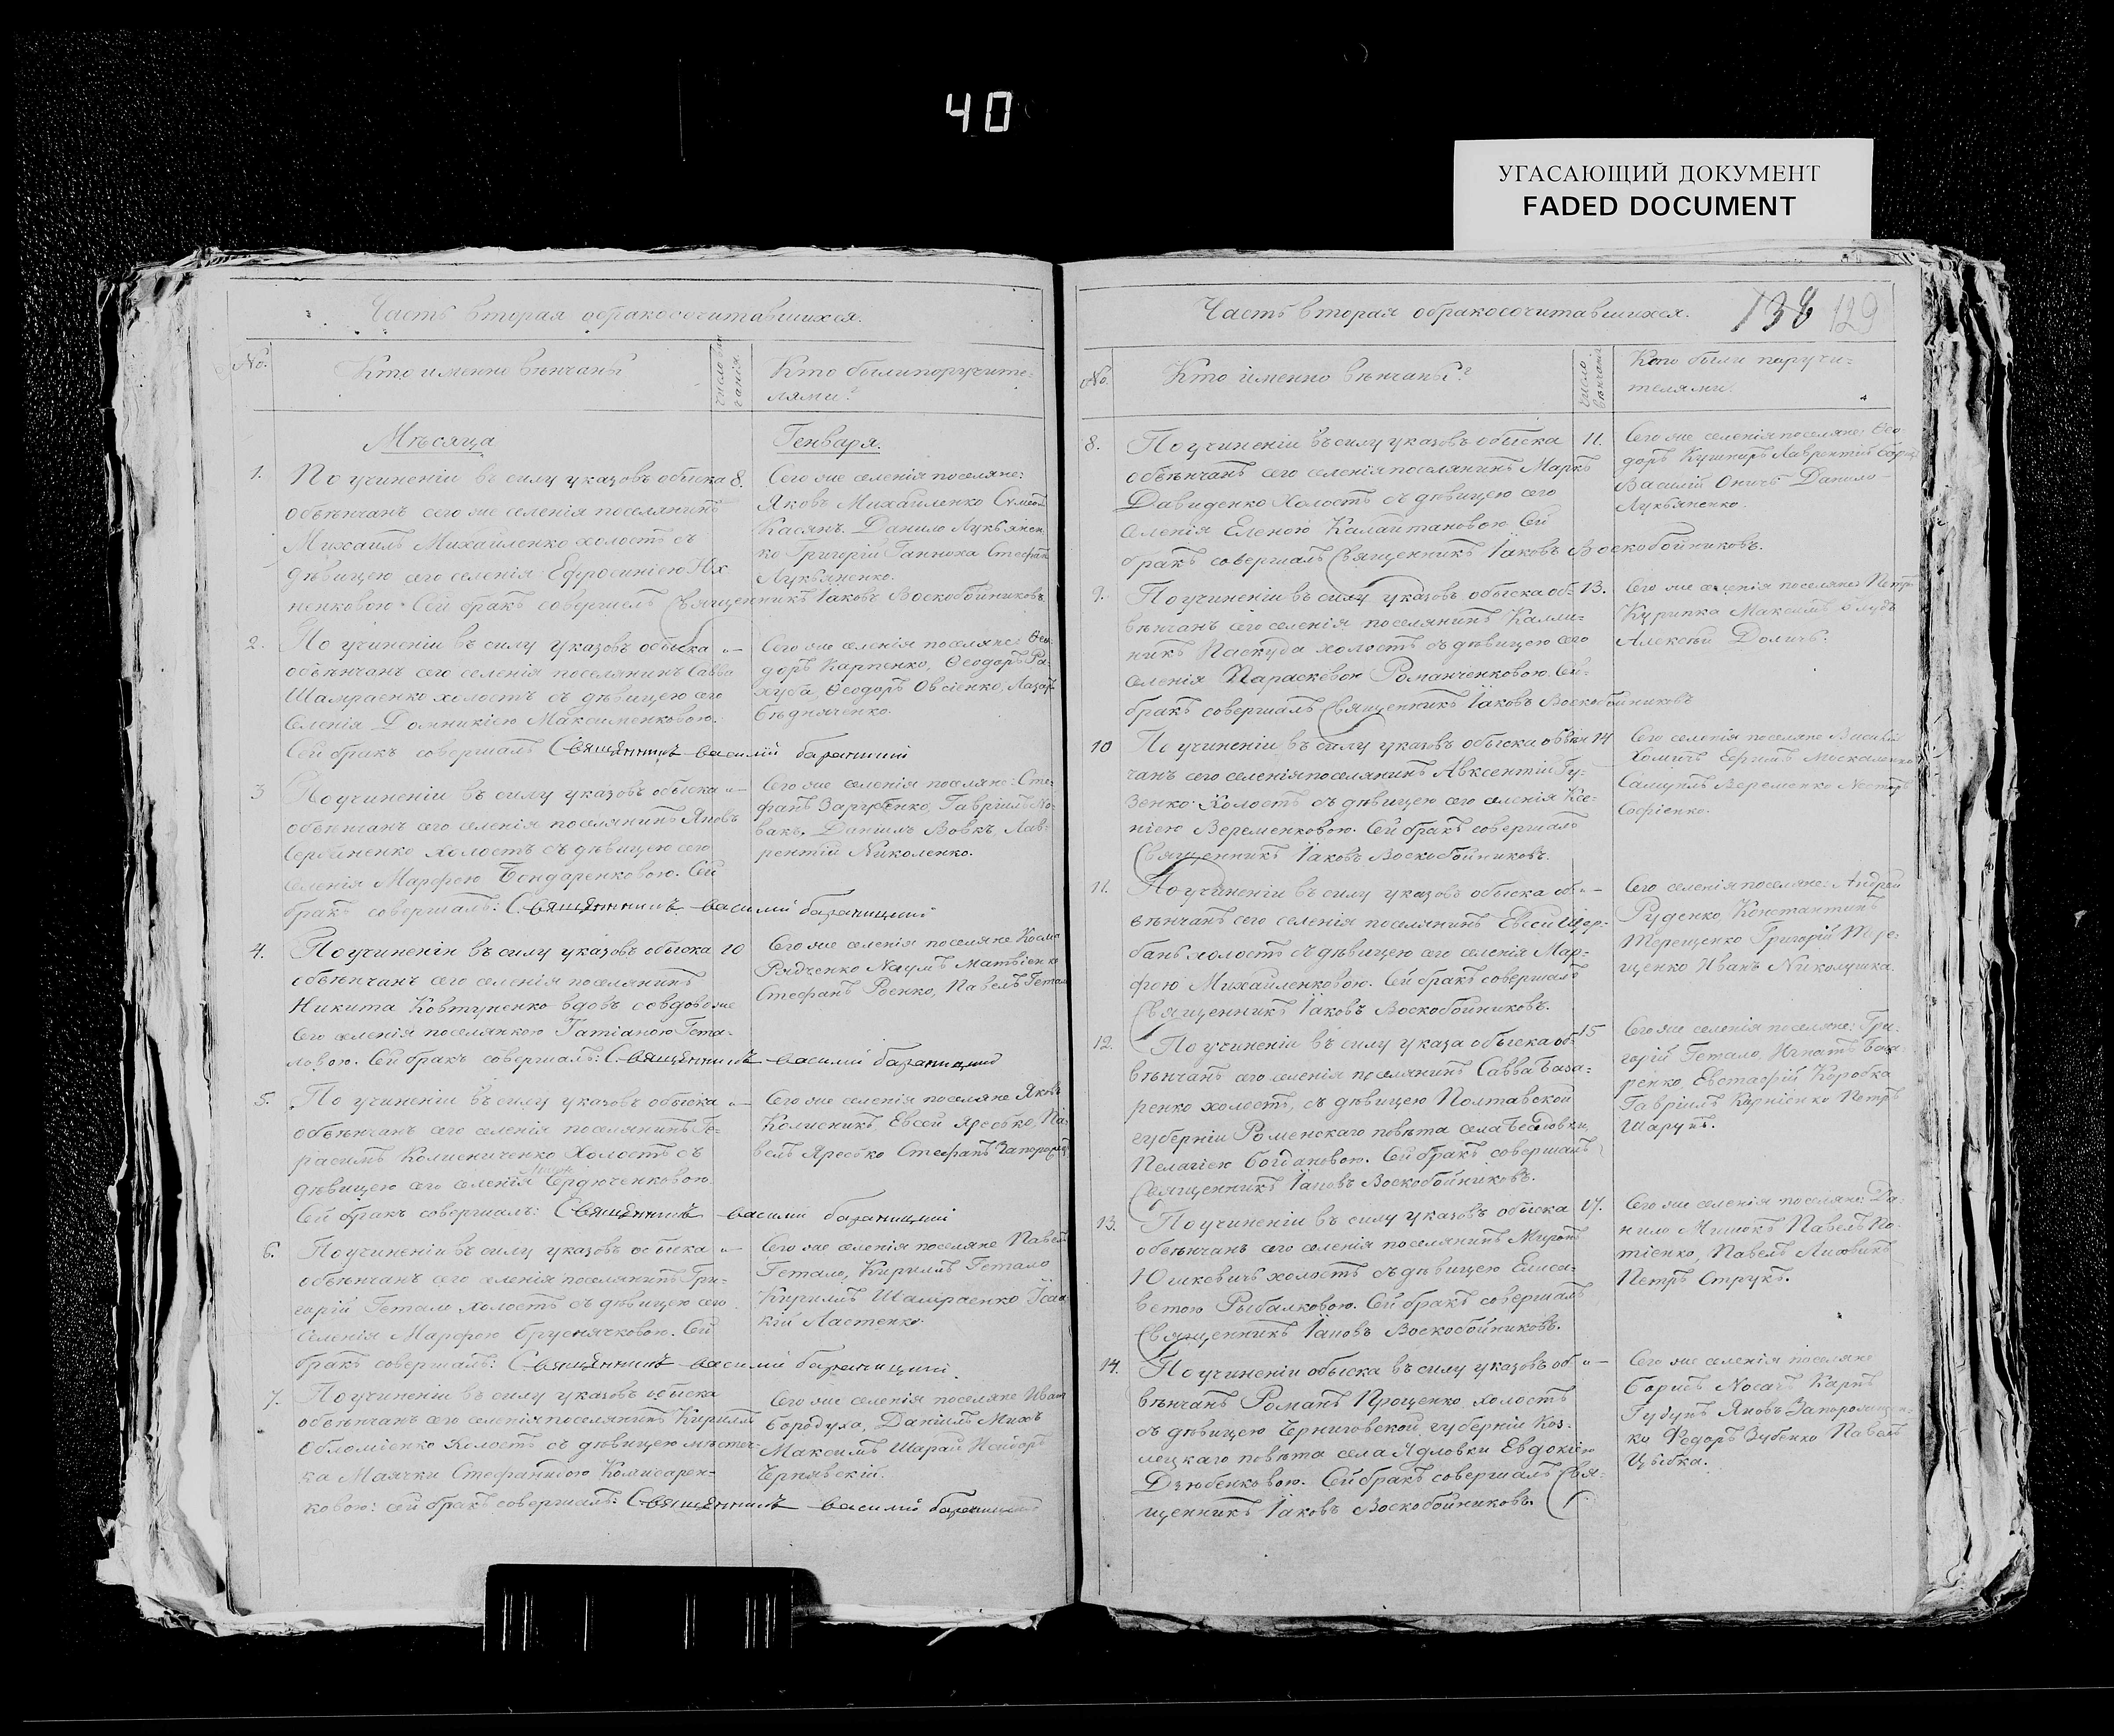 40
УГАСАЮЩИЙ ДОКУМЕНТ
FADED DOCUMENT
Часть вторая обракосочитавшихся.
№.
Кто именно вѣнчаны?
число вѣн
чанія.
Кто были поручите=
лями?
Мѣсяца
Генваря.
1. По учиненіи въ силу указовъ обыска 8.
обвѣнчанъ сего же селенія поселянинъ
Михаилъ Михайленко холостъ съ
дѣвицею сего селенія Ефросиніею
ненковою. Сей бракъ совершилъ Священникъ Іаковъ Воскобойниковъ.
Сего же селенія поселяне:
Яковъ Михайленко
Касянъ. Данило Лукьянен
ко Григорій Ганноха Стефанъ
Лукьяненко.
2. По учиненіи въ силу указовъ обыска „—
обвѣнчанъ сего селенія поселянинъ Савва
Шамраенко холостъ съ дѣвицею сего
селенія Домникіею Максименковою.
Сей бракъ совершалъ Священникъ василій
Сего же селенія поселяне: Ѳео=
доръ Карпенко, Ѳеодоръ Ра=
хуба, Ѳеодоръ Овсіенко, Лазарь
Бѣдняченко.
3 По учиненіи въ силу указовъ обыска „—
обвѣнчанъ сего селенія поселянинъ Яковъ
Сердиненко холостъ съ дѣвицею сего
селенія Марфою Бондаренковою. Сей
бракъ совершалъ: Священникъ василій
Сего же селенія поселяне: Сте=
фанъ Зарубенко, Гавріилъ Но=
вакъ, Даніилъ Вовкъ, Лав=
рентій Николенко.
4. По учиненіи въ силу указовъ обыска 10
обвѣнчанъ сего селенія поселянинъ
Никита Ковтуненко вдовъ со вдовою же
сего селенія поселянкою Татіаною Гета=
ловою. Сей бракъ совершалъ: Священникъ василій
Сего же селенія поселяне Косма
Рядченко Наумъ Матвіенко
Стефанъ Роенко, Павелъ Гетало
5. По учиненіи въ силу указовъ обыска „—
обвѣнчанъ сего селенія поселянинъ Ге=
расимъ Колисниченко Холостъ съ
дѣвицею сего селенія Сердюченковою
Сей бракъ совершалъ: Священникъ василій
Сего же селенія поселяне Яковъ
Колисникъ, Евсей Яресько, Па=
велъ Яресько Стефанъ Запорожецъ
6. По учиненіи въ силу указовъ обыска „—
обвѣнчанъ сего селенія поселянинъ Гри=
горій Гетало холостъ съ дѣвицею сего
селенія Марфою Бруснячковою. Сей
бракъ совершалъ: Священникъ василій
Сего же селенія поселяне Павелъ
Гетало, Кирилъ Гетало
Кирилъ Шамраенко Ісаа
кій Ластенко.
7. По учиненіи въ силу указовъ обыска
обвѣнчанъ сего селенія поселянинъ Кирилъ
Обломіенко холостъ съ дѣвицею мѣстеч=
ка Маячки Стефанидою Комисарен=
ковою: сей бракъ совершалъ: Священникъ василій
Сего же селенія поселяне Иванъ
Бородуха, Даніилъ
Максимъ Шарай Исидоръ
Чернявскій.
Часть вторая обракосочитавшихся.
138 129
№.
Кто именно вѣнчаны?
число
вѣнчанія
Кто были поручи=
телями.
8. По учиненіи въ силу указовъ обыска 11.
обвѣнчанъ сего селенія поселянинъ Маркъ
Давиденко Холостъ съ дѣвицею сего
селенія Еленою Калаитановою Сей
бракъ совершалъ Священникъ Іаковъ Воскобойниковъ.
Сего же селенія поселяне: Ѳео
доръ Кушниръ Лаврентій
Василій Данило
Лукьяненко.
9. По учиненіи въ силу указовъ обыска об= 13.
вѣнчанъ сего селенія поселянинъ Калли=
никъ Паскуда холостъ съ дѣвицею сего
селенія Параскевою Романченковою. Сей=
бракъ совершалъ Священникъ Іаковъ Воскобойниковъ
Сего же селенія поселяне Петръ
Курипка Максимъ
Алексѣй Доличъ.
10 По учиненіи въ силу указовъ обыска обвѣн 14
чанъ сего селенія поселянинъ Авксентій Гу=
зенко Холостъ съ дѣвицею сего селенія Ксе=
ніею Веременковою. Сей бракъ совершалъ
Священникъ Іаковъ Воскобойниковъ.
Сего селенія поселяне Василій
Хомичъ Ефимъ Москаленко
Самуилъ Веременко Несторъ
Софіенко.
11. По учиненіи въ силу указовъ обыска об „—
вѣнчанъ сего селенія поселянинъ Евсей Щер=
бань холостъ съ дѣвицею сего селенія Мар=
фою Михайленковою. Сей бракъ совершалъ
Священникъ Іаковъ Воскобойниковъ.
Сего селенія поселяне: Андрей
Руденко, Константинъ
Терещенко Григорій Тере=
щенко Иванъ Николушка.
12. По учиненіи въ силу указа обыска об= 15
вѣнчанъ сего селенія поселянинъ Савва База=
ренко холостъ, съ дѣвицею Полтавской
губерніи Роменскаго повѣта села Бесѣдовки,
Пелагіею Богдановою. Сей бракъ совершалъ
Священникъ Іаковъ Воскобойниковъ.
Сего же селенія поселяне: Гри=
горій Гетало, Игнатъ База=
ренко, Евстафій Коробка
Гавріилъ Корніенко Петръ
Шарупъ.
13. По учиненіи въ силу указовъ обыска 17.
обвѣнчанъ сего селенія поселянинъ Миронъ
Юшкевичъ холостъ съ дѣвицею Елиса=
ветою Рыбалковою. Сей бракъ совершалъ
Священникъ Іаковъ Воскобойниковъ.
Сего же селенія поселяне: Да=
нило Мишокъ Павелъ По=
тіенко, Павелъ Литвинъ
Петръ Струкъ.
14. По учиненіи обыска въ силу указовъ об „—
вѣнчанъ Романъ Прощенко холостъ
съ дѣвицею Черниговской губерніи Коз=
лецкаго повѣта села Ядловки Евдокіею
Дзюбенковою. Сей бракъ совершалъ Свя=
щенникъ Іаковъ Воскобойниковъ.
Сего же селенія поселяне
Борисъ Носачъ Карпъ
Губупъ Яковъ Запорожцен=
ко Федоръ Зубенко Павелъ
Цыбка.